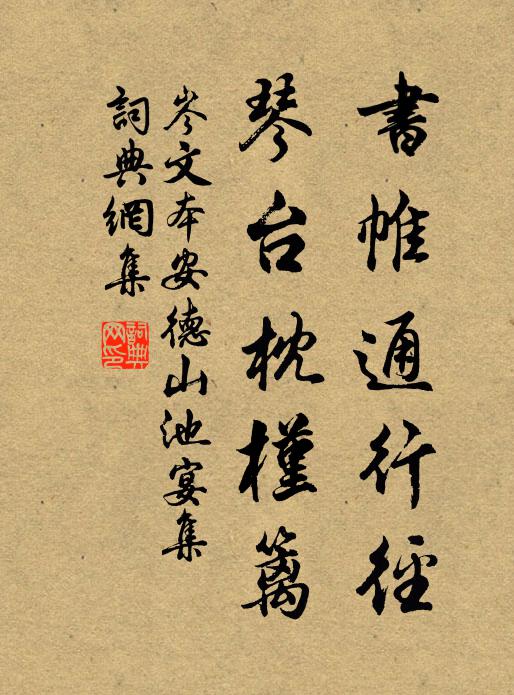 書帷通行徑
琴台枕槿篱
岑文本安德山池宴集
詞典網集
詞典网印